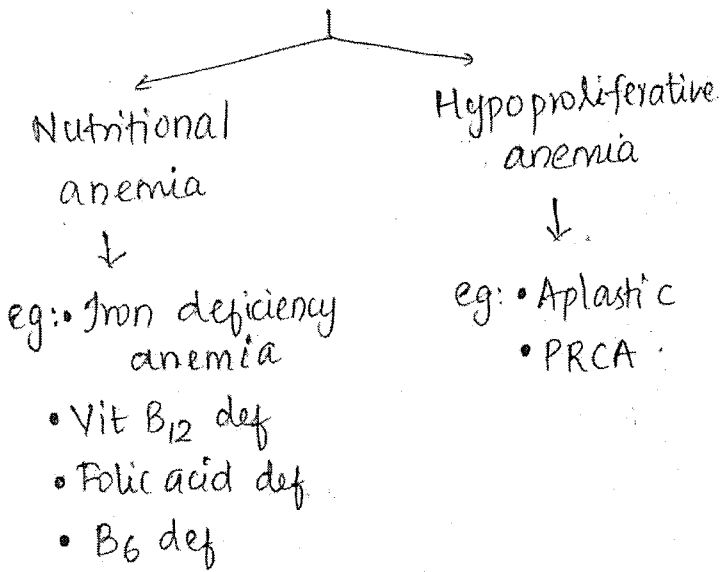 Nutritional
anemia
eg:• Iron deficiency
anemia
• Vit B12 def
• Folic acid def
• B6 def
Hypoproliferative
anemia
eg: • Aplastic
• PRCA